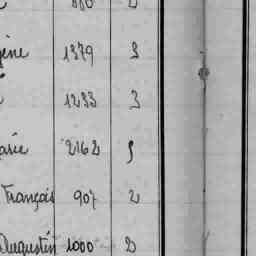 880 2
gène 1379 3
1233 3
arie 2162 5
François 907 2
Augustin 1000 2